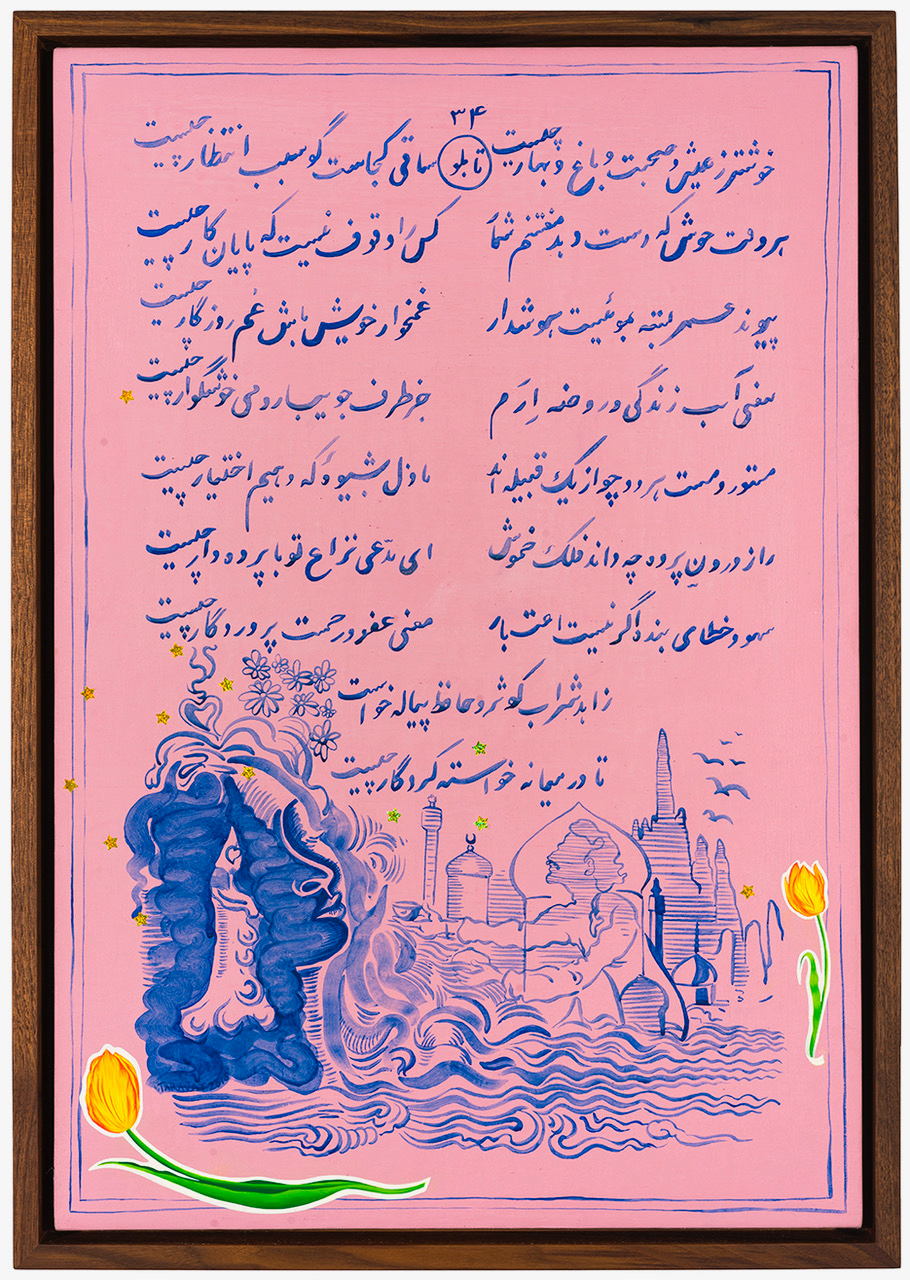 ۳۴
تابلو
خوشتر ز عیش و صحبت و باغ و بهار چیست ساقی کجاست گو سبب انتظار چیست
هر وقت خوش که دست دهد مغتنم شمار کس را وقوف نیست که پایان کار چیست
پیوند عمر بسته بموئیست هوشدار غمخوار خویش باش غم روزگار چیست
معنی آب زندگی و روضه اِرَم جز طرف جویبار و می خوشگوار چیست
مستور و مست هر دو چو از یک قبیله اند ما دل بشیوهٔ که دهیم اختیار چیست
راز درون پرده چه داند فلک خموش ای مدّعی نزاع تو با پرده دار چیست
سهو و خطای بنده اگر نیست اعتبار معنی عفو و رحمت پروردگار چیست
زاهد شراب کوثر و حافظ پیاله خواست
تا در میانه خواسته کردگار چیست